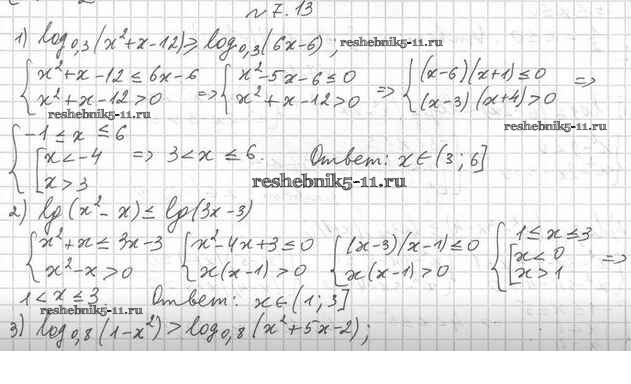 № 7.13
1) log₀,₃(x²+x-12) ≥ log₀,₃(6x-6); reshebnik5-11.ru
{x²+x-12 ≤ 6x-6 => {x²-5x-6 ≤ 0 => {(x-6)(x+1) ≤ 0 =>
{x²+x-12>0 {x²+x-12>0 {(x-3)(x+4)>0
reshebnik5-11.ru reshebnik5-11.ru
{-1 ≤ x ≤ 6
{[x<-4 => 3<x ≤ 6. Ответ: x∈(3; 6]
[x>3
reshebnik5-11.ru
2) lg(x²-x) ≤ lg(3x-3)
{x²+x ≤ 3x-3 {x²-4x+3 ≤ 0 {(x-3)(x-1) ≤ 0 {1 ≤ x ≤ 3
{x²-x>0 {x(x-1)>0 {x(x-1)>0 {[x<0 =>
[x>1
1<x ≤ 3 Ответ: x∈(1; 3]
reshebnik5-11.ru
3) log₀,₈(1-x²) > log₀,₈(x²+5x-2);